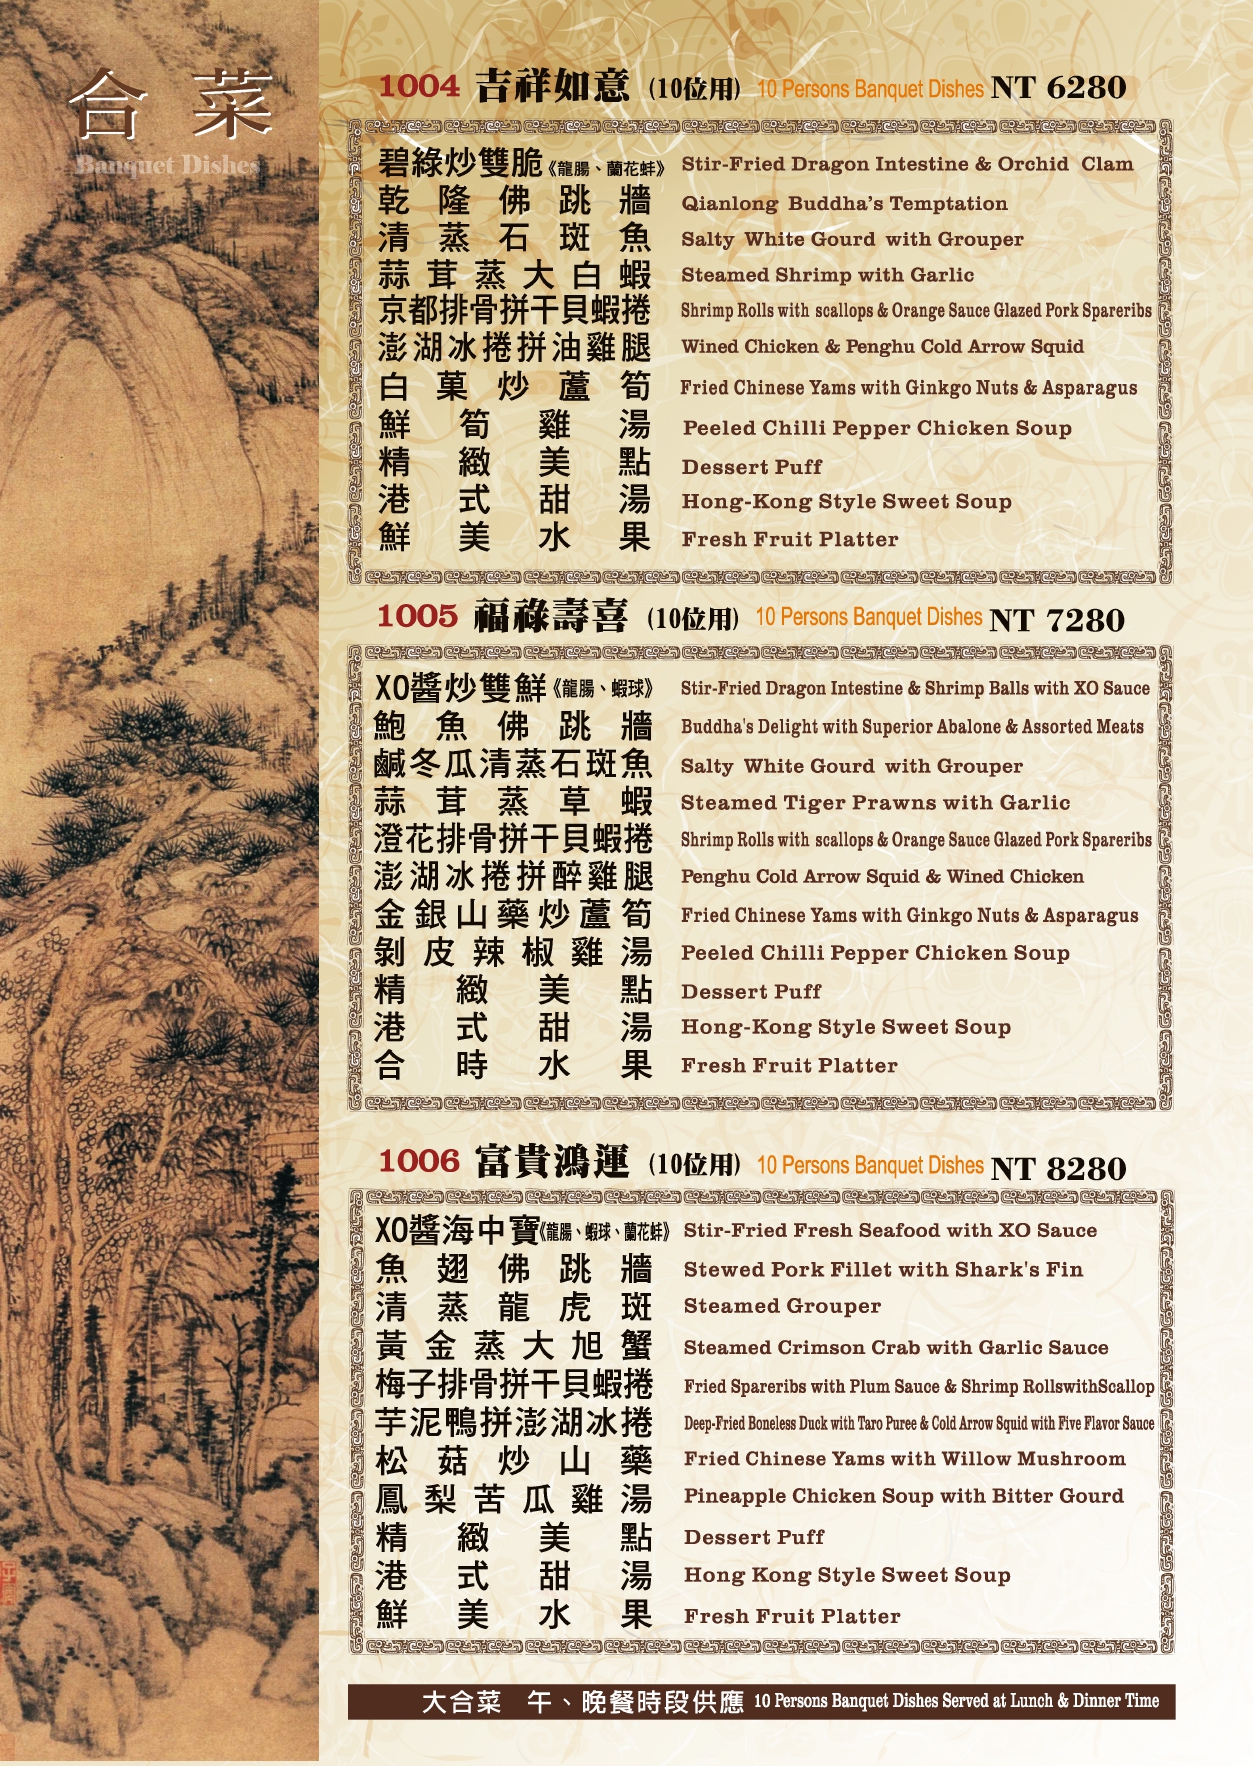 合菜
Banquet Dishes
1004 吉祥如意 (10位用) 10 Persons Banquet Dishes NT 6280
碧綠炒雙脆《龍腸、蘭花蚌》 Stir-Fried Dragon Intestine & Orchid Clam
乾隆佛跳牆 Qianlong Buddha's Temptation
清蒸石斑魚 Salty White Gourd with Grouper
蒜茸蒸大白蝦 Steamed Shrimp with Garlic
京都排骨拼干貝蝦捲 Shrimp Rolls with scallops & Orange Sauce Glazed Pork Spareribs
澎湖冰捲拼油雞腿 Wined Chicken & Penghu Cold Arrow Squid
白菓炒蘆筍 Fried Chinese Yams with Ginkgo Nuts & Asparagus
鮮筍雞湯 Peeled Chilli Pepper Chicken Soup
精緻美點 Dessert Puff
港式甜湯 Hong-Kong Style Sweet Soup
鮮美水果 Fresh Fruit Platter
1005 福祿壽喜 (10位用) 10 Persons Banquet Dishes NT 7280
XO醬炒雙鮮《龍腸、蝦球》 Stir-Fried Dragon Intestine & Shrimp Balls with XO Sauce
鮑魚佛跳牆 Buddha's Delight with Superior Abalone & Assorted Meats
鹹冬瓜清蒸石斑魚 Salty White Gourd with Grouper
蒜茸蒸草蝦 Steamed Tiger Prawns with Garlic
澄花排骨拼干貝蝦捲 Shrimp Rolls with scallops & Orange Sauce Glazed Pork Spareribs
澎湖冰捲拼醉雞腿 Penghu Cold Arrow Squid & Wined Chicken
金銀山藥炒蘆筍 Fried Chinese Yams with Ginkgo Nuts & Asparagus
剝皮辣椒雞湯 Peeled Chilli Pepper Chicken Soup
精緻美點 Dessert Puff
港式甜湯 Hong-Kong Style Sweet Soup
合時水果 Fresh Fruit Platter
1006 富貴鴻運 (10位用) 10 Persons Banquet Dishes NT 8280
XO醬海中寶《龍腸、蝦球、蘭花蚌》 Stir-Fried Fresh Seafood with XO Sauce
魚翅佛跳牆 Stewed Pork Fillet with Shark's Fin
清蒸龍虎斑 Steamed Grouper
黃金蒸大旭蟹 Steamed Crimson Crab with Garlic Sauce
梅子排骨拼干貝蝦捲 Fried Spareribs with Plum Sauce & Shrimp RollswithScallop
芋泥鴨拼澎湖冰捲 Deep-Fried Boneless Duck with Taro Puree & Cold Arrow Squid with Five Flavor Sauce
松菇炒山藥 Fried Chinese Yams with Willow Mushroom
鳳梨苦瓜雞湯 Pineapple Chicken Soup with Bitter Gourd
精緻美點 Dessert Puff
港式甜湯 Hong Kong Style Sweet Soup
鮮美水果 Fresh Fruit Platter
大合菜 午、晚餐時段供應 10 Persons Banquet Dishes Served at Lunch & Dinner Time